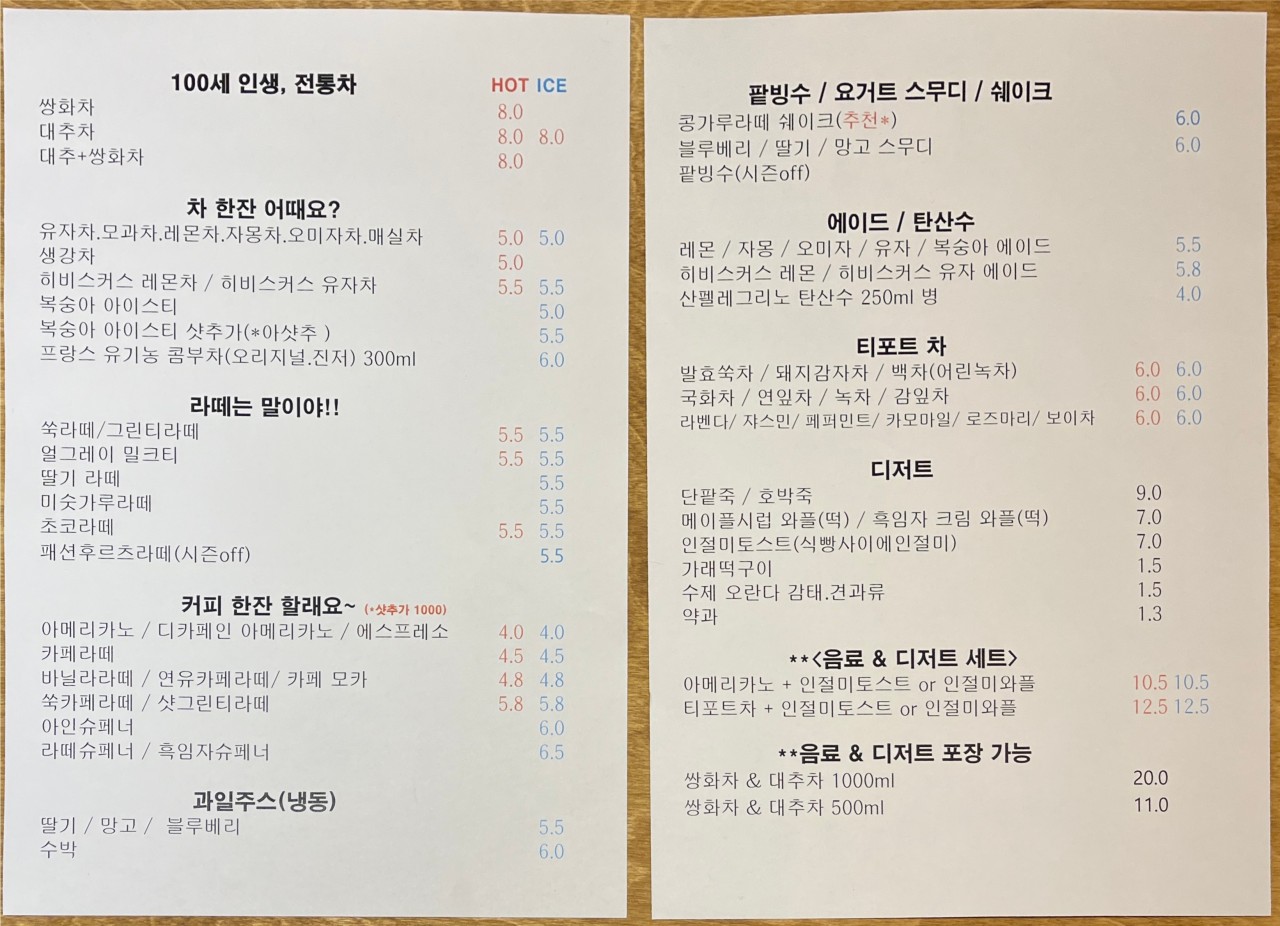 100세 인생, 전통차 HOT ICE
쌍화차 8.0
대추차 8.0 8.0
대추+쌍화차 8.0
차 한잔 어때요?
유자차.모과차.레몬차.자몽차.오미자차.매실차 5.0 5.0
생강차 5.0
히비스커스 레몬차 / 히비스커스 유자차 5.5 5.5
복숭아 아이스티 5.0
복숭아 아이스티 샷추가(*아샷추 ) 5.5
프랑스 유기농 콤부차(오리지널.진저) 300ml 6.0
라떼는 말이야!!
쑥라떼/그린티라떼 5.5 5.5
얼그레이 밀크티 5.5 5.5
딸기 라떼 5.5
미숫가루라떼 5.5
초코라떼 5.5 5.5
패션후르츠라떼(시즌off) 5.5
커피 한잔 할래요~ (*샷추가 1000)
아메리카노 / 디카페인 아메리카노 / 에스프레소 4.0 4.0
카페라떼 4.5 4.5
바닐라라떼 / 연유카페라떼/ 카페 모카 4.8 4.8
쑥카페라떼 / 샷그린티라떼 5.8 5.8
아인슈페너 6.0
라떼슈페너 / 흑임자슈페너 6.5
과일주스(냉동)
딸기 / 망고 / 블루베리 5.5
수박 6.0
팥빙수 / 요거트 스무디 / 쉐이크
콩가루라떼 쉐이크(추천*) 6.0
블루베리 / 딸기 / 망고 스무디 6.0
팥빙수(시즌off)
에이드 / 탄산수
레몬 / 자몽 / 오미자 / 유자 / 복숭아 에이드 5.5
히비스커스 레몬 / 히비스커스 유자 에이드 5.8
산펠레그리노 탄산수 250ml 병 4.0
티포트 차
발효쑥차 / 돼지감자차 / 백차(어린녹차) 6.0 6.0
국화차 / 연잎차 / 녹차 / 감잎차 6.0 6.0
라벤다/ 쟈스민/ 페퍼민트/ 카모마일/ 로즈마리/ 보이차 6.0 6.0
디저트
단팥죽 / 호박죽 9.0
메이플시럽 와플(떡) / 흑임자 크림 와플(떡) 7.0
인절미토스트(식빵사이에인절미) 7.0
가래떡구이 1.5
수제 오란다 감태.견과류 1.5
약과 1.3
**<음료 & 디저트 세트>
아메리카노 + 인절미토스트 or 인절미와플 10.5 10.5
티포트차 + 인절미토스트 or 인절미와플 12.5 12.5
**음료 & 디저트 포장 가능
쌍화차 & 대추차 1000ml 20.0
쌍화차 & 대추차 500ml 11.0